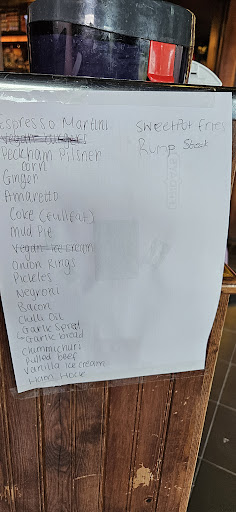 Espresso Martini
Vegan
Peckham Pilsner
Corn
Ginger
Amaretto
Coke (fullfat)
Mud Pie
Vegan ice cream
Onion Rings
Pickles
Negroni
Bacon
Chilli Oil
Garlic Spread
Garlic bread
Chimmichuri
Pulled beef
Vanilla ice cream
Sweetpot fries
Rump Steak